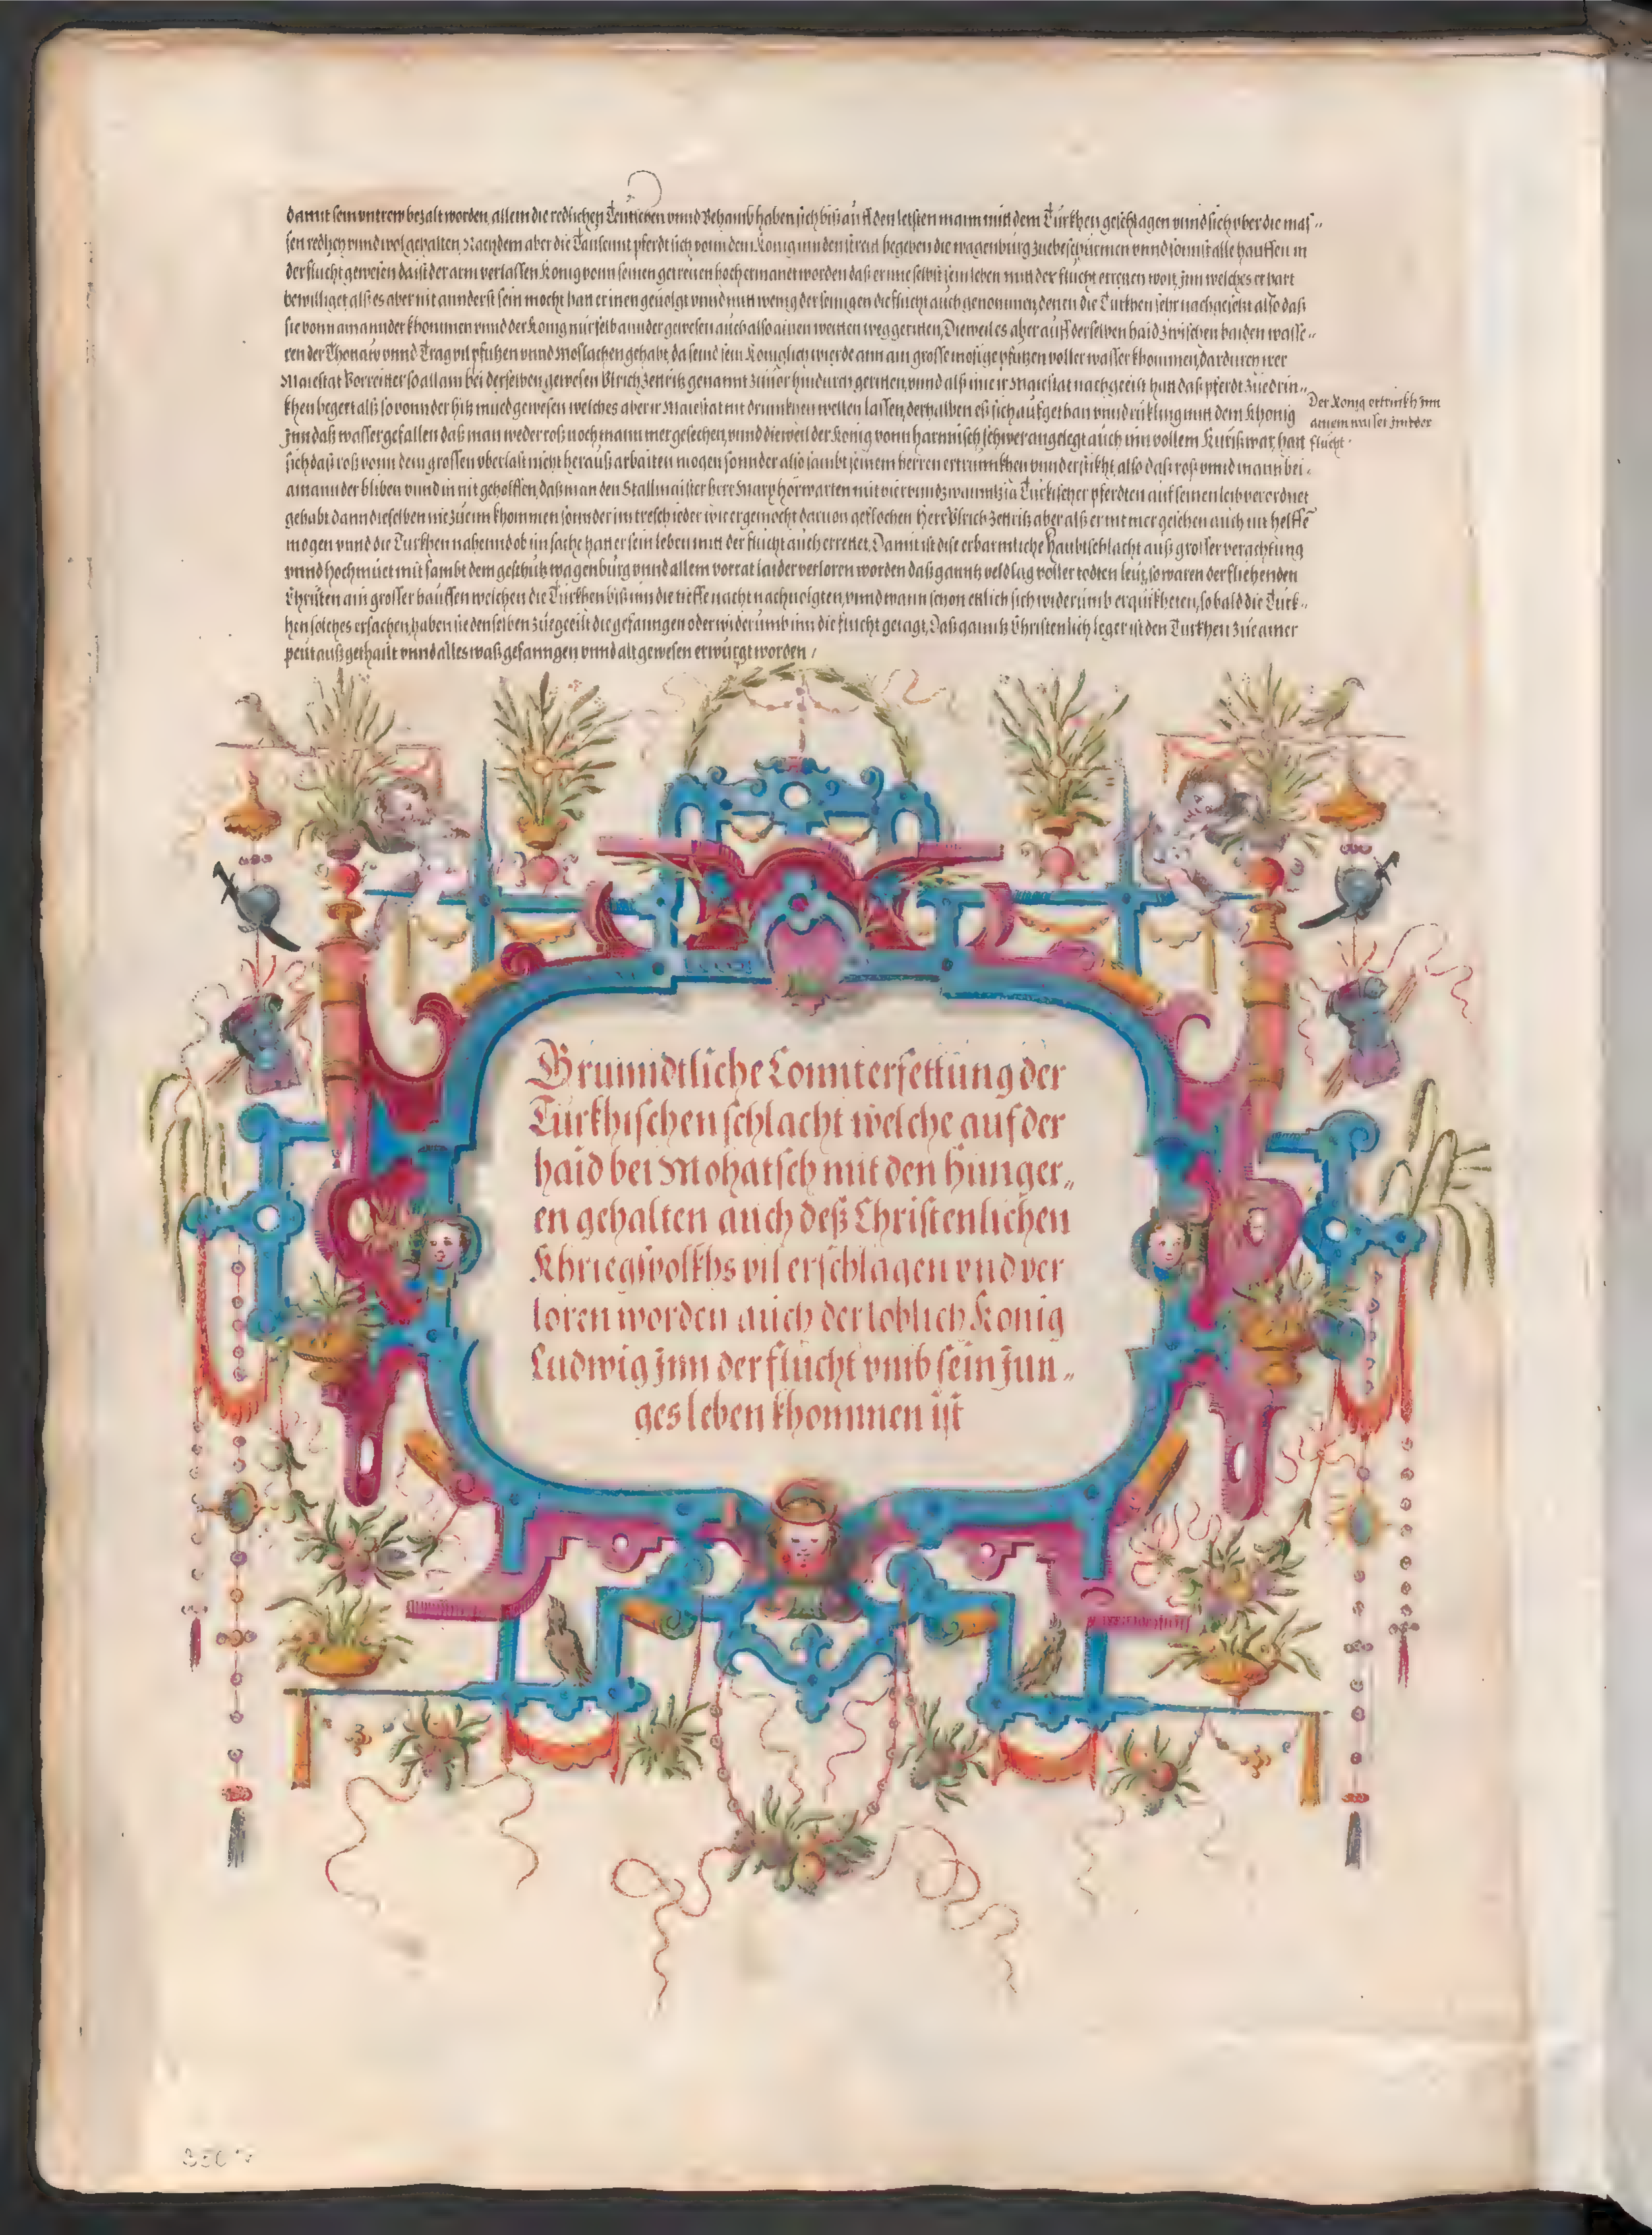 damit sein vntrew bezalt worden, allein die redlichen Teutschen vnnd Behamb haben sich biß auff den letsten mann mitt dem Türkhen geschlagen vnnd sich vber die mas„
sen redlich vnnd wol gehalten, Nachdem aber die Tausennt pferdt sich vonn dem König inn den streit begeben die wagenburg zuebeschürmen vnnd sonnst alle hauffen in
der flucht gewesen da ist der arm verlassen König vonn seinen getreuen hoch ermanet worden daß er ime selbst sein leben mitt der flucht erretten wolt, jnn welches er hart
bewilliget alß es aber nit annderst sein mocht hatt er inen geuolgt vnnd mitt wenig der seinigen die flucht auch genommen, denen die Türkhen sehr nachgeeilt also daß
sie vonn ainannder khommen vnnd der König nur selb annder gewesen auch also ainen weitten weg geritten, Dieweil es aber auff derselben haid zwischen baiden wasse„
ren der Thonaw vnnd Trag vil pfützen vnnd Moslachen gehabt, da seind sein Königlich wierde ann ain grosse mosige pfützen voller wasser khommen, dardurch irer
Maiestat Vorreitter so allain bei derselben gewesen Vlrich Zettritz genannt zuuor hindurch geritten, vnnd alß ime ir Maiestat nachgeeilt hatt daß pferdt zuedrin„
khen begert alß so vonn der hitz mued gewesen welches aber ir Maiestat nit drinnkhen wellen lassen, derhalben eß sich aufgethan vnnd rükling mitt dem Khönig
jnn daß wasser gefallen daß man weder roß noch mann mer gesechen, vnnd dieweil der König vonn harnnisch schwer angelegt auch inn vollem Küriß war, hatt
sich daß roß vonn dem grossen vberlast nicht herauß arbaiten mögen sonnder also sambt seinem herren ertrunnkhen vnnd erstikht, also daß roß vnnd mann bei„
ainannder bliben vnnd in nit geholffen, daß man den Stallmaister herr Marx hörwarten mit vier vnnd zwainntzig Türkischer pferdten auf seinen leib verordnet
gehabt dann dieselben nie zue im khommen sonnder im tresch ieder wie er gemocht daruon geflochen Herr Vlrich Zettritz aber alß er nit mer gesehen auch nit helffē
mögen vnnd die Türkhen nahennd ob im sache hatt er sein leben mitt der flucht auch errettet, Damit ist dise erbarmliche Haubtschlacht auß grosser verachtung
vnnd hochmüet mit sambt dem geschütz wagenburg vnnd allem vorrat laider verloren worden daß ganntz veld lag voller todten leut, so waren der fliehenden
Christen ain grosser hauffen welchen die Türkhen biß inn die tieffe nacht nachuolgten, vnnd wann schon ettlich sich widerumb erquikheten, so bald die Türk„
hen solches ersachen, haben sie denselben zuegeeilt die gefanngen oder widerumb inn die flucht geiagt, Daß ganntz Christenlich leger ist den Türkhen zue ainer
peut außgethailt vnnd alles waß gefanngen vnnd alt gewesen erwürgt worden /
Der König ertrinkht inn
ainem wasser jnn der
flucht.
Grunndtliche Connterfettung der
Türkhischen schlacht welche auf der
haid bei Mohatsch mit den Hunger„
en gehalten auch deß Christenlichen
Khriegsvolkhs vil erschlagen vnd ver
loren worden auch der loblich König
Ludwig jnn der flucht vmb sein jun„
ges leben khommen ist